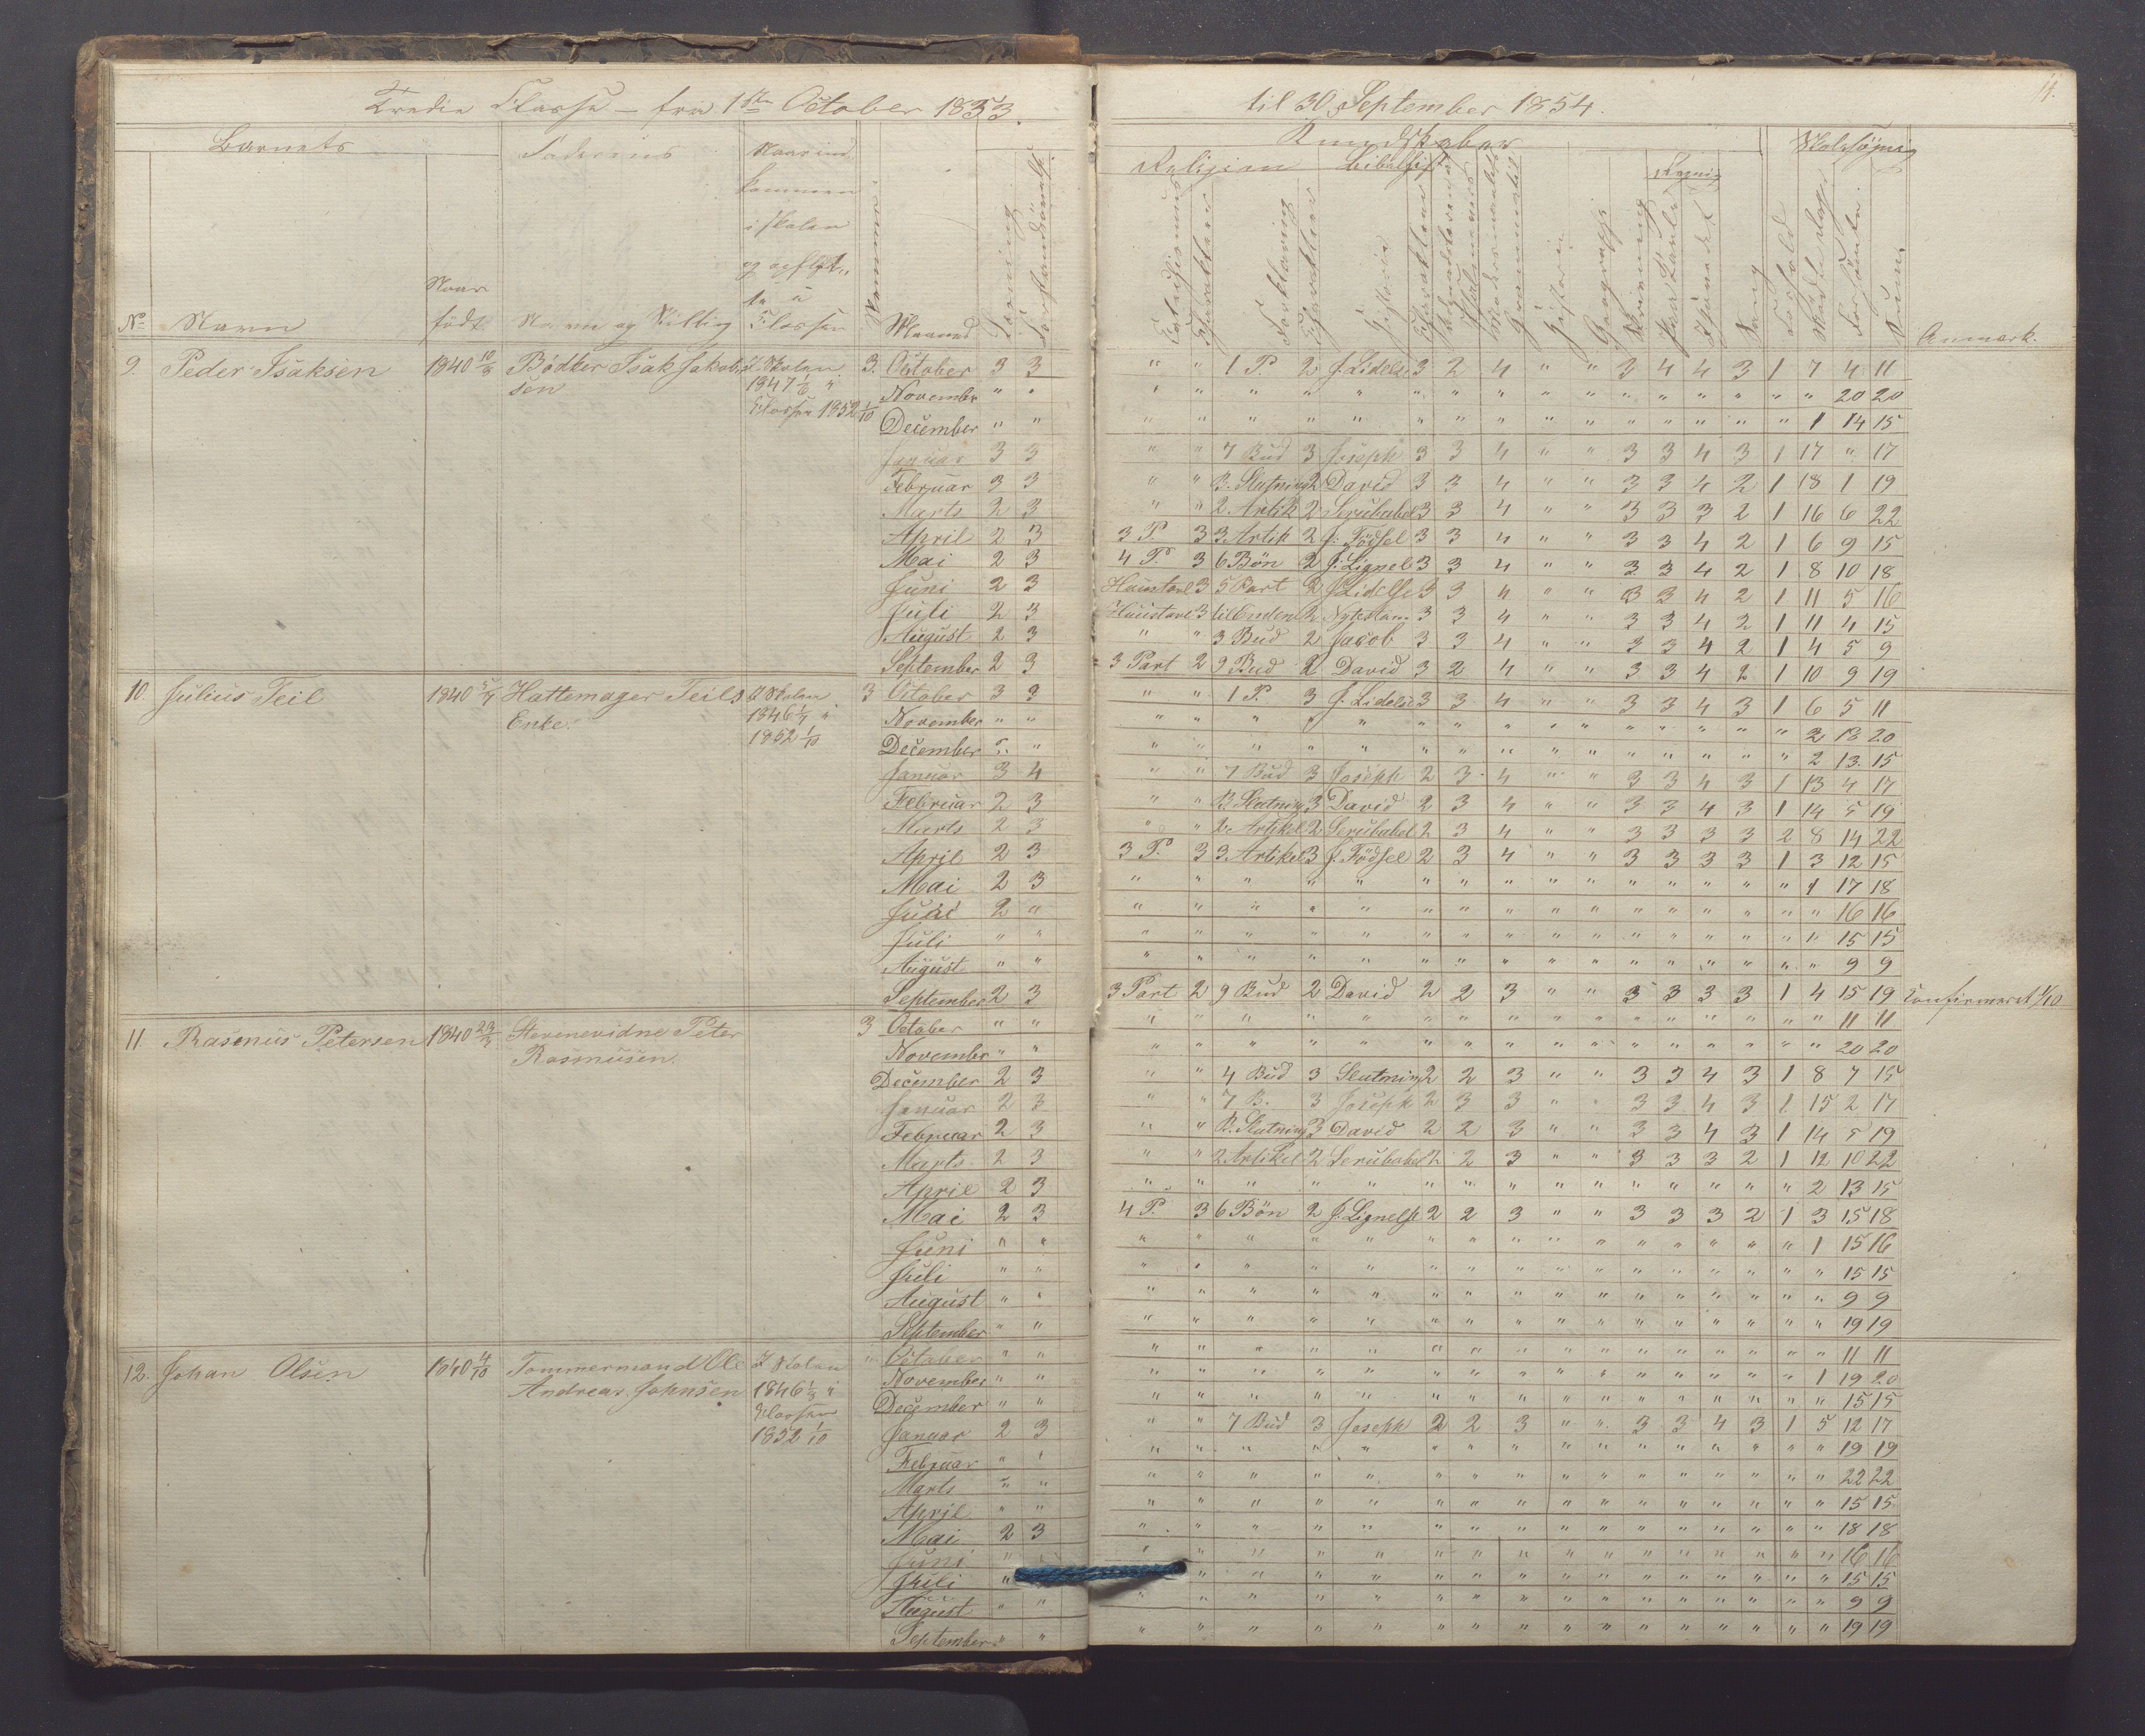 Tredie Classe – fra 1ste October 1853.
til 30 September 1854.
11.
Barnets
Faderens
Naar ind
kommen
i Skolen
Kundskaber
Religion
Skolesøgning
Regning
No
Navn
Naar
født.
Navn og Stilling
Classen
Nummer
Maaned
Læsning
Forklaring
Historie
Historie
Geografi
Skrivning
Paa Tavle
Sang
Forhold
Forsømte
Summa
Anmærk.
9. Peder Isaksen 1840 10/3 Bødker Isak Jakob I Skolen 3. October 3 3 " " 1 P. 2 J. Lidelse 3 2 4 " " 3 4 4 3 1 7 4 11
sen 1847 1/6 i November " " " " " " " " " " " " " " " " " " " 20 20
Classen 1852 1/10 December " " " " " " " " " " " " " " " " " " 1 14 15
Januar 3 3 " " 7 Bud 3 Joseph 3 3 4 " " 3 3 4 3 1 17 " 17
Februar 3 3 " " B. Slutning 2 David 3 3 4 " " 3 3 4 2 1 18 1 19
Marts 2 3 " " 2. Artik 2 Serubabel 3 3 4 " " 3 3 3 2 1 16 6 22
April 2 3 3 P. 3 3. Artik 2 J. Fødsel 3 3 4 " " 3 3 4 2 1 6 9 15
Mai 2 3 4 P. 3 6 Bön 2 J. Lignels 3 3 4 " " 3 3 4 2 1 8 10 18
Juni 2 3 Huustavl 3 5 Part 2 J. Lidelse 3 3 4 " " 3 3 4 2 1 11 5 16
Juli 2 3 Huustavl 3 til Enden 2 3 3 4 " " 3 3 4 2 1 11 4 15
August 2 3 " " 3 Bud 2 Jacob 3 3 4 " " 3 3 4 2 1 4 5 9
September 2 3 3 Part 2 9 Bud 2 David 3 2 4 " " 3 3 4 2 1 10 9 19
10. Julius Teil 1840 5/7 Hattemager Teils I Skolen 3 October 3 3 " " 1 P. 3 J. Lidelse 3 3 4 " " 3 3 4 3 1 6 5 11
Enke. 1846 1/7 i November " " " " " " " " " " " " " " " " " " 2 18 20
1852 1/10 December " " " " " " " " " " " " " " " " " " 2 13 15
Januar 3 4 " " 7 Bud 3 Joseph 2 3 4 " " 3 3 4 3 1 13 4 17
Februar 2 3 " " B. Slutning 3 David 2 3 4 " " 3 3 4 3 1 14 5 19
Marts 2 3 " " 2. Artikel 2 Serubabel 2 3 4 " " 3 3 3 3 2 8 14 22
April 2 3 3 P. 3 3. Artikel 3 J. Fødsel 2 3 4 " " 3 3 3 3 1 3 12 15
Mai 2 3 " " " " " " " " " " " " " " " 1 17 18
Juni 2 " " " " " " " " " " " " " " " " " 16 16
Juli " " " " " " " " " " " " " " " " " " " 15 15
August " " " " " " " " " " " " " " " " " " " 9 9
September 2 3 3 Part 2 9 Bud 2 David 2 2 3 " " 3 3 3 3 1 4 15 19 Confirmeret 1/10
11. Rasmus Petersen 1840 23/7 Stevnevidne Peter 3 October " " " " " " " " " " " " " " " " " " " 11 11
Rasmusen November " " " " " " " " " " " " " " " " " " " 20 20
December 2 3 " " 4 Bud 3 Slutning 2 2 3 " " 3 3 4 3 1 8 7 15
Januar 2 3 " " 7 B. 3 Joseph 2 3 3 " " 3 3 4 3 1 15 2 17
Februar 2 3 " " B. Slutning 3 David 2 2 3 " " 3 3 4 3 1 14 5 19
Marts 2 3 " " 2 Artikel 2 Serubabel 2 2 3 " " 3 3 3 2 1 12 10 22
April 2 3 " " " " " " " " " " " " " " " 2 13 15
Mai 2 3 4 P. 3 6 Bön 2 J. Lignelse 2 2 3 " " 3 3 3 2 1 3 15 18
Juni " " " " " " " " " " " " " " " " " " 1 15 16
Juli " " " " " " " " " " " " " " " " " " " 15 15
August " " " " " " " " " " " " " " " " " " " 9 9
September " " " " " " " " " " " " " " " " " " " 19 19
12. Johan Olsen 1840 4/10 Tømmermand Ole I Skolen " October " " " " " " " " " " " " " " " " " " " 11 11
Andreas Johnsen 1846 1/3 i November " " " " " " " " " " " " " " " " " " 1 19 20
Classen December " " " " " " " " " " " " " " " " " " " 15 15
1852 1/10 Januar 2 3 " " 7 Bud 3 Joseph 2 2 3 " " 3 3 4 3 1 5 12 17
Februar " " " " " " " " " " " " " " " " " " " 19 19
Marts " " " " " " " " " " " " " " " " " " " 22 22
April " " " " " " " " " " " " " " " " " " " 15 15
Mai 2 3 " " " " " " " " " " " " " " " " " 18 18
Juni " " " " " " " " " " " " " " " " " " " 16 16
Juli " " " " " " " " " " " " " " " " " " 15 15
August " " " " " " " " " " " " " " " " " " " 9 9
September " " " " " " " " " " " " " " " " " " " 19 19